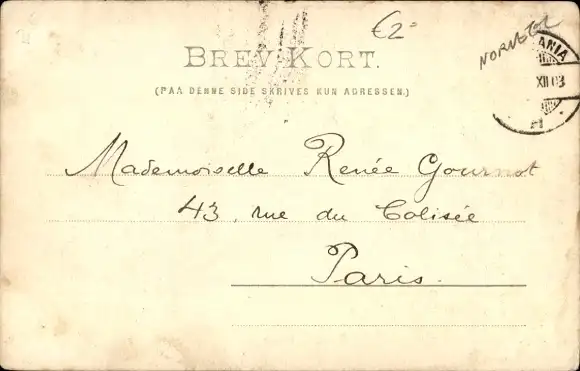 €2
NORVEGE
ANIA
XII 03
BREV-KORT.
(PAA DENNE SIDE SKRIVES KUN ADRESSEN.)
Mademoiselle Renée Gournot
43, rue du Colisée
Paris.